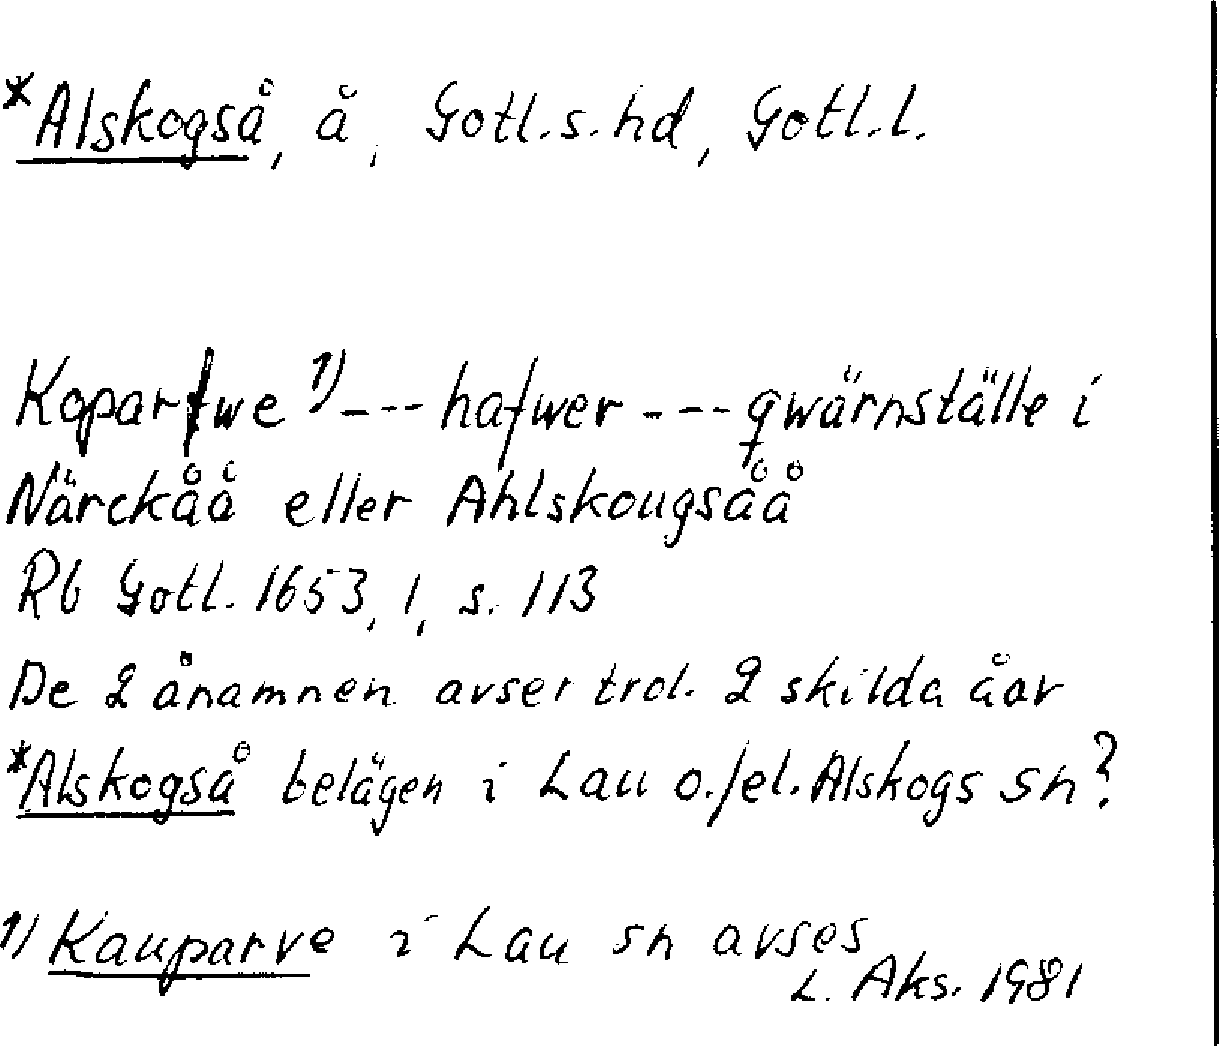 *Alskogså, å, Gotl.s.hd, Gotl.l.
Koparfwe 1) --- hafwer --- qwärnställe i
Närckåå eller Ahlskougsåå
Rb Gotl. 1653, 1, s. 113
De 2 ånamnen avser trol. 2 skilda åar
*Alskogså belägen i Lau o./el. Alskogs sn?
1) Kauparve i Lau sn avses
L. Aks. 1981